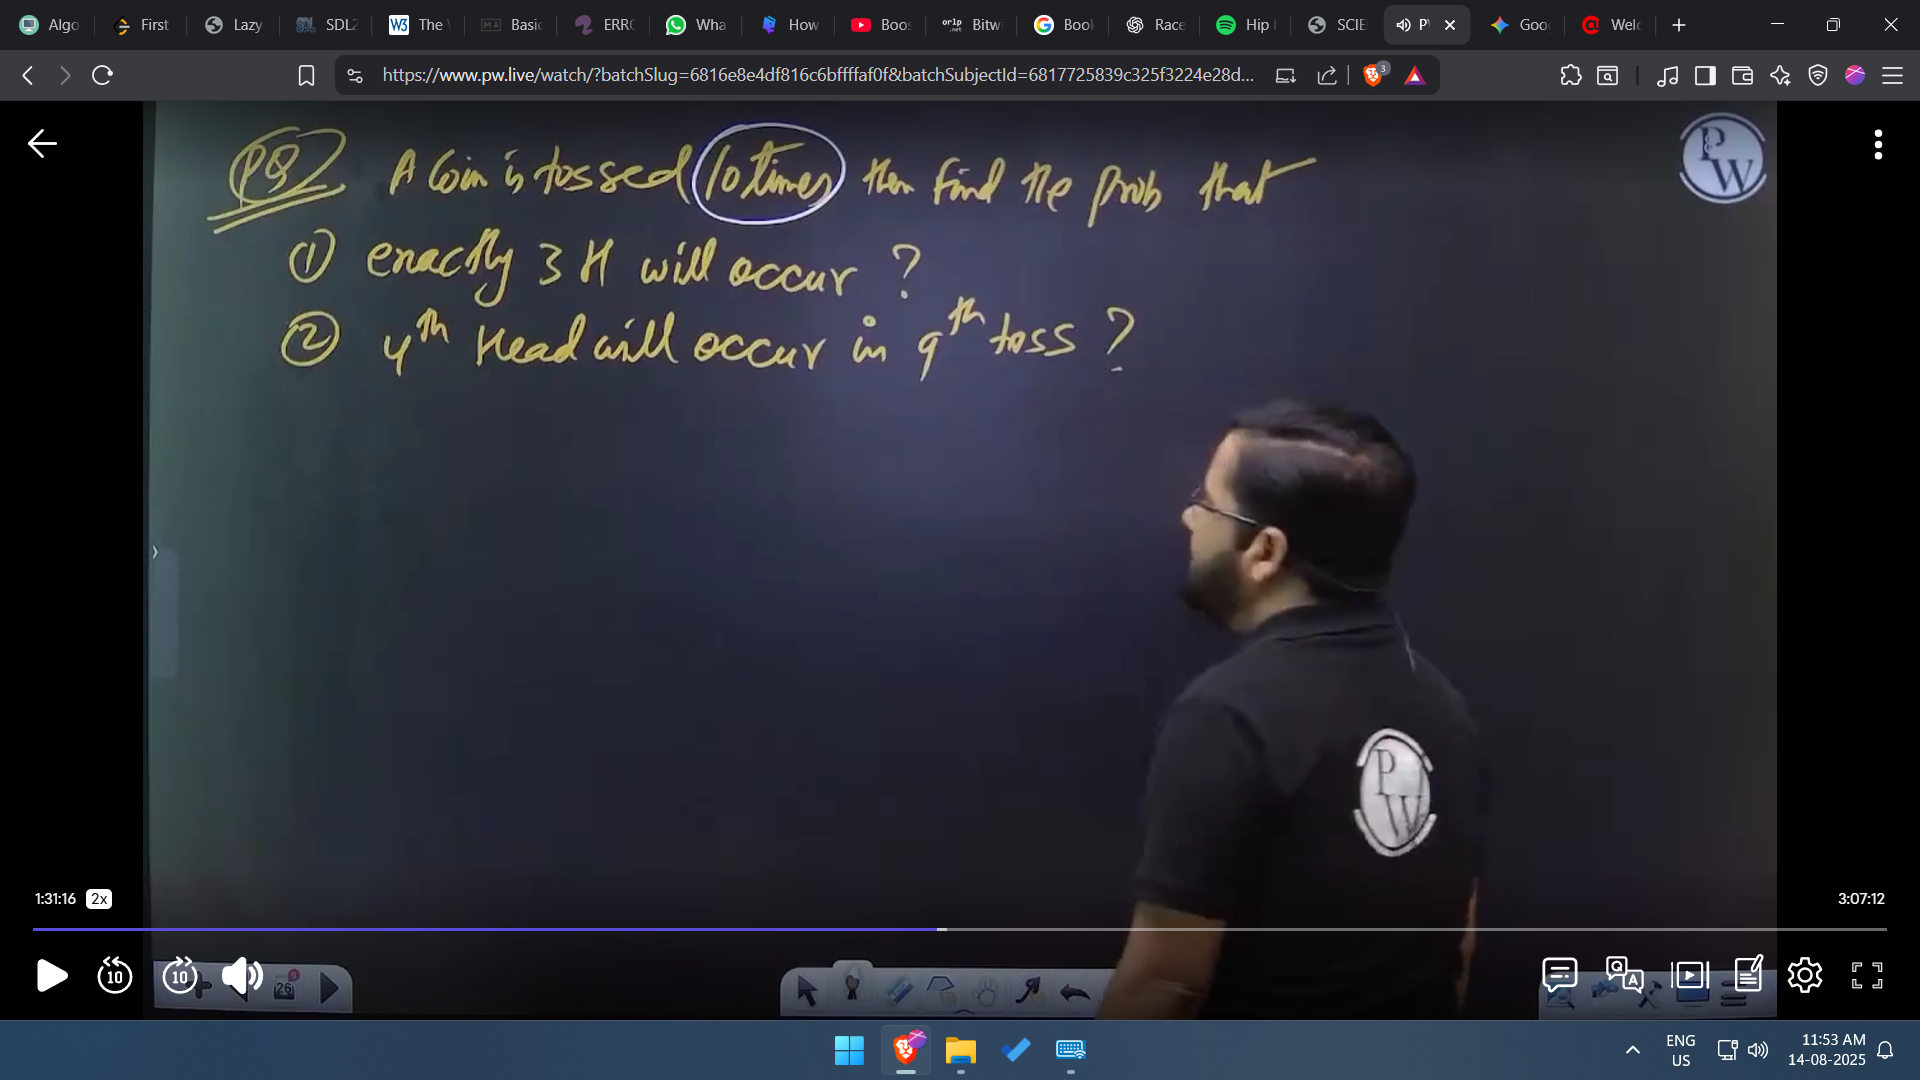 Algo
First
Lazy
SDL2
The
Basic
ERRO
Wha
How
Boos
Bitw
Book
Race
Hip
SCIE
P
Goo
Welc
https://www.pw.live/watch/?batchSlug=6816e8e4df816c6bffffaf0f&batchSubjectId=6817725839c325f3224e28d...
3
PQ2 A Coin is tossed 10 times then find the prob that
① exactly 3 H will occur ?
② 4th Head will occur in 9th toss ?
PW
PW
1:31:16 2x
3:07:12
10
10
26
Q A
ENG
US
11:53 AM
14-08-2025